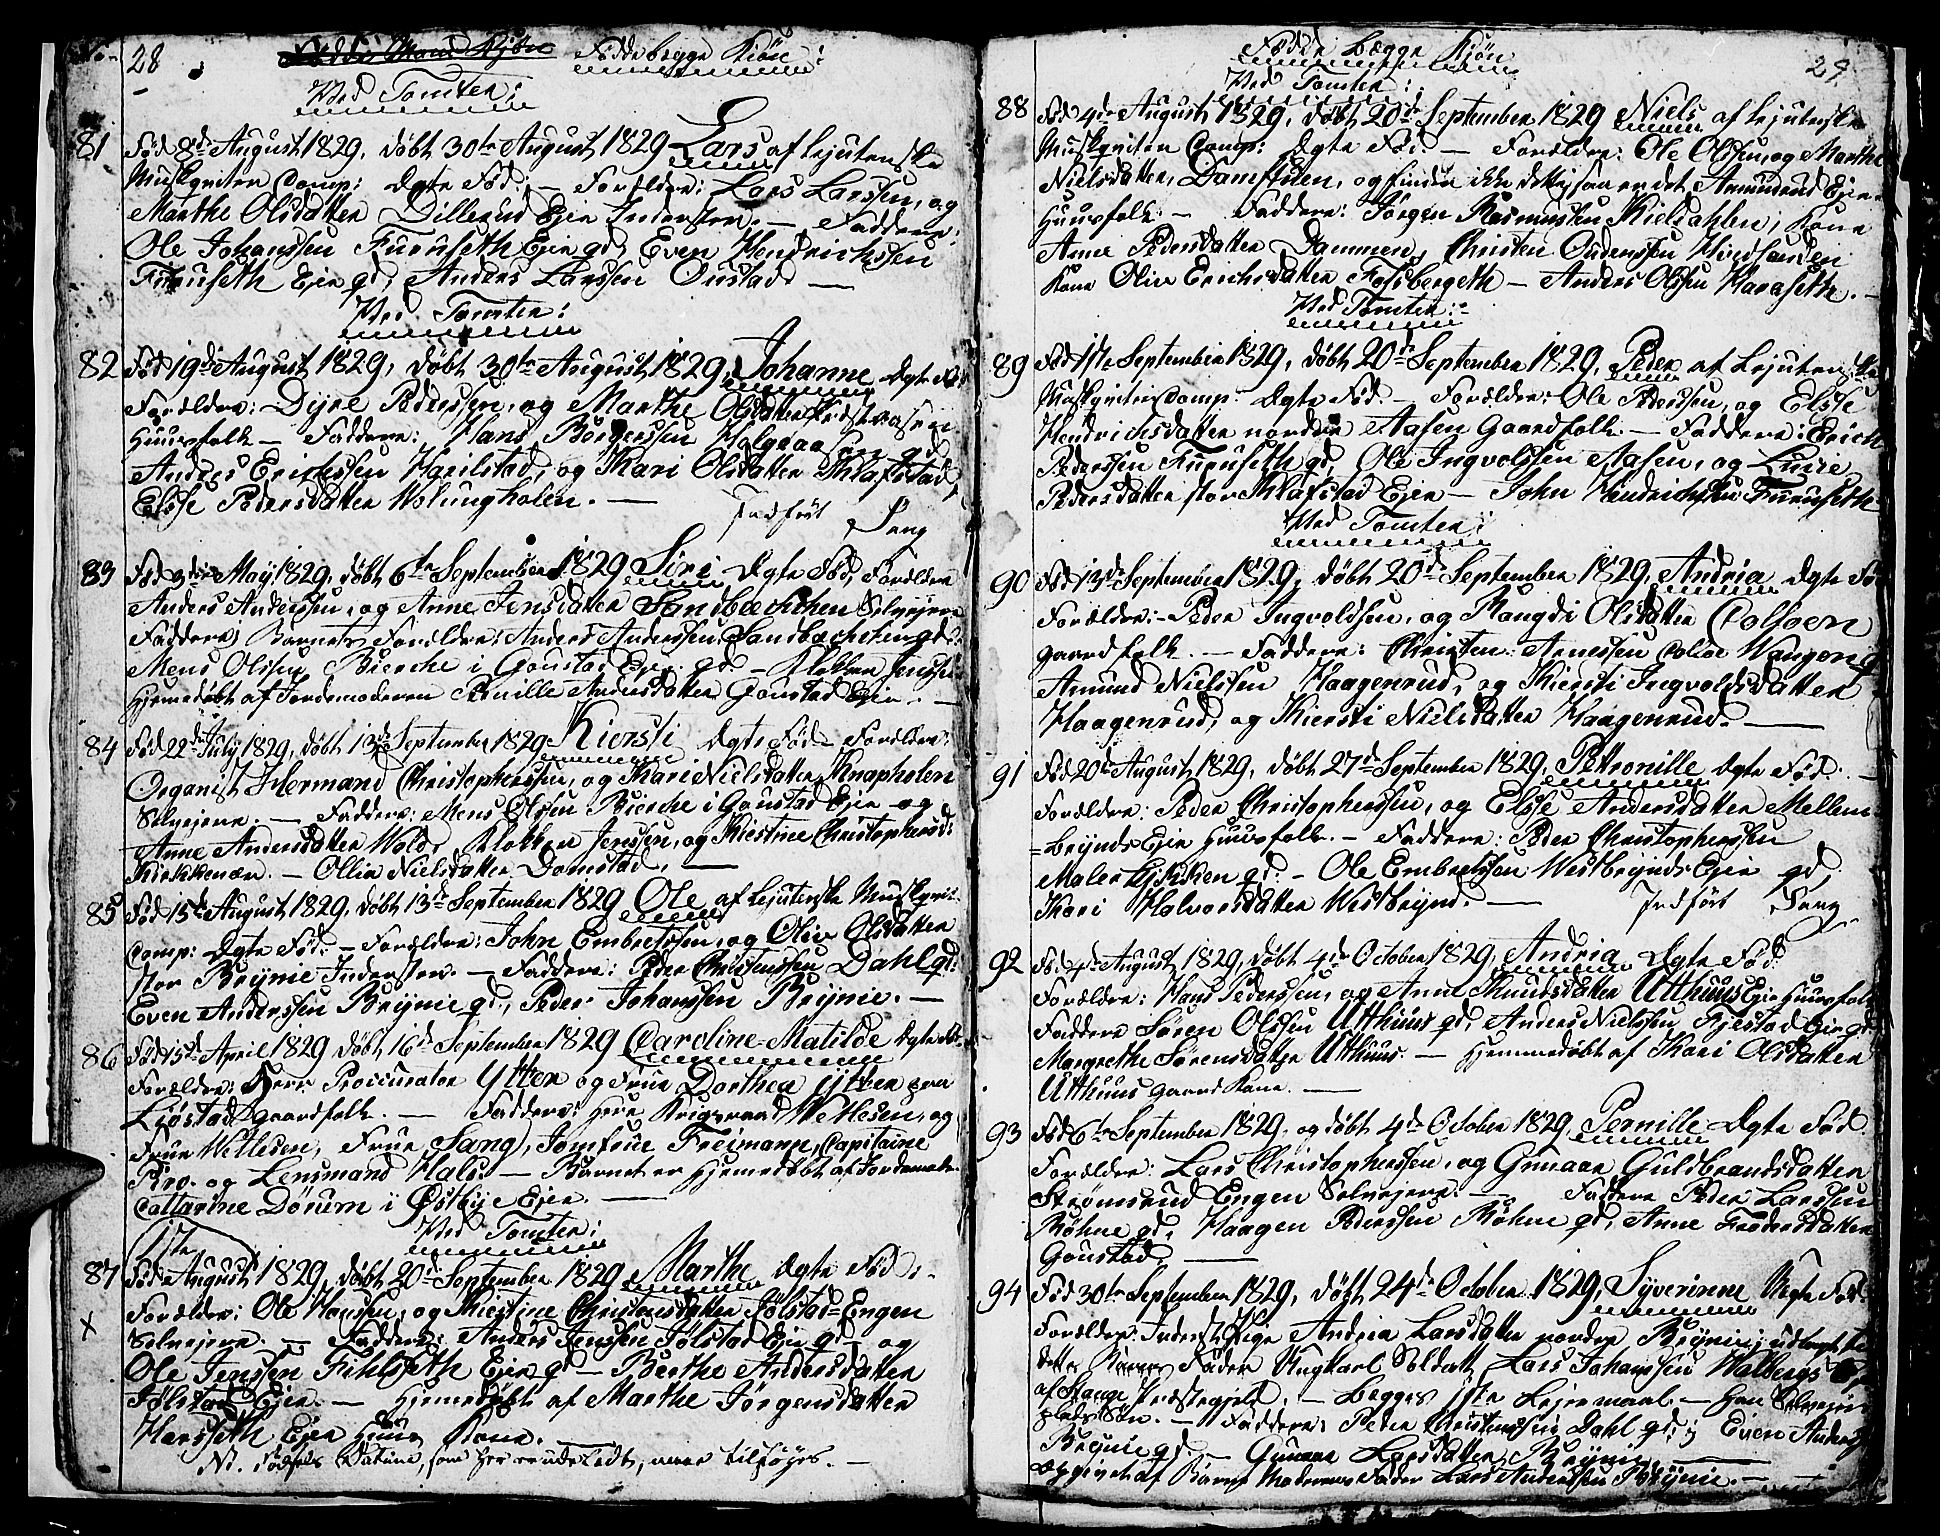 28
Fødde begge Kiøn:
Ved Tomten:
81 Fød 8de August 1829, døbt 30te August 1829 Lars af Lejutenske
Musqueteer Comp: Ægte Fød: — Forældre: Lars Larssen, og
Marthe Olsdatter Dillerud Ejer Inderster. — Faddere:
Ole Johanssen Furuseth Ejer gd, Even Hendrichssen
Furuseth Ejer gd, Anders Larssen Ourstad. —
Ved Tomten:
82 Fød 19de August 1829, døbt 30te August 1829, Johanne Ægte Fød
Forældre: Dyre Pederssen, og Marthe Olsdatter
Huusfolk — Faddere: Hans Børgerssen
Anders Erichssen Harilstad, og Kari Olsdatter Klafstad,
Elsse Pedersdatter Wolungholen. —
Indført Sang
83 Fød May 1829, døbt 6te September 1829 Siri Ægte Fød, Forældre
Anders Anderssen, og Anne Jensdatter Sandbæchchen Selvejere
Faddere: Barnets Forældre: Anders Anderssen Sandbæchchen gd.
Mens Olssen Bierche i Gaustad Ejer gd — Klokker Jenssen
Hjemmedøbt af Jordemoderen Pernille Andersdatter Gaustad Ejer. —
84 Fød 22de July 1829, døbt 13de September 1829 Kiersti Ægte Fød — Forældre:
Organist Hermand Christopherssen, og Kari Nielsdatter Knapholen
Selvejere. — Faddere: Mens Olssen Bierche i Gaustad Ejer og
Anne Andersdatter Wold, Klokker Jenssen, og Kiestine Christophersd:
Kiekkenær. — Ollia Nielsdatter Domstad. —
85 Fød 15de August 1829, døbt 13de September 1829 Ole af Lejutenske Musqvet:
Comp: Ægte Fød: — Forældre: John Embretssen, og Olia Olsdatter
stor Brynie Inderster. — Faddere: Peder Christenssen Dahl gd:
Even Anderssen Brynie gd, Peder Johanssen Brynie. —
86 Fød 15de April 1829 døbt 16de September 1829 Caroline-Matilde Ægte
Forældre: Herr Proccurator Ytter og Frue Dorthea Ytter paa
Ljøstad gaardfolk. — Faddere: Herr Krigsraad Wetlesen, og
Frue Wetlesen, Frue Sang, Jomfrue Freimann, Capitaine
Bro. og Lensmand Hals — Barnet er Hjemmedøbt af Jordemoder
Cattarine Dørum i Østbye Ejer. —
Ved Tomten:
1ste
87 Fød August 1829, døbt 20de September 1829 Marthe Ægte Fød:
Forældre: Ole Hanssen, og Kiestine Christensdatter Jølstad-Engen
Selvejere. — Faddere: Anders Jenssen Jølstad Ejer gd og
X
Ole Jenssen Fihlseth Ejer gd — Berthe Andersdatter
Jølstad Ejer. — Hjemmedøbt af Marthe Jørgensdatter
Harsseth Ejer Huus Kone. —
Nt. Fødsels Datum, som her er udeladt, maae tilføyes. —
29
Fødde begge Kiøn
Ved Tomten:
88 Fød 4de August 1829, døbt 20de September 1829 Niels af Lejutenske
Musqveteer Comp: Ægte Fød. — Forældre: Ole Olssen, og Marthe
Nielsdatter, Damstuen, og findes ikke dette, saa er det Amundrud Ejer
Huusfolk — Faddere: Jørgen Rasmussen Kielsahlen, Kone
Anne Pedersdatter Dammen, Christen
Kone Olia Erichsdatter Fossbergeth — Anders Olssen Haraseth. —
Ved Tomten:
89 Fød 1ste September 1829, døbt 20de September 1829, Peder af Lejutenske
Musqveteer Comp. Ægte Fød. — Forældre: Ole Pederssen, og Elsse
Hendrichsdatter nordre Aasen Gaardfolk. — Faddere: Erich
Pederssen Furuseth gd, Ole Ingvolssen Aasen, og Lucie
Pedersdatter stor Klafstad Ejer — John Hendrichssen Furuseth
Ved Tomten:
90 Fød 13de September 1829, døbt 20de September 1829, Andria Ægte Fød
Forældre: — Peder Ingvoldssen, og Rangdi Olsdatter Colloen
gaardfolk. — Faddere: Christen Arnessen Coloe Wangen gd
Amund Nielssen Haagenrud, og Kiersti Ingvoldsdatter
Haagenrud, og Kiersti Nielsdatter Haagenrud. —
91 Fød 20de August 1829, døbt 27de September 1829, Petronille Ægte Fød. —
Forældre: Peder Christopherssen, og Elsse Andersdatter Mellem-
=Brynds Ejer Huusfolk. — Faddere: Peder Christopherssen
Maler gd: — Ole Embretssen Westbrynds Ejer gd
Kari Halvorsdatter Westbrynd. — Indført Sang
92 Fød 4de August 1829, døbt 4de October 1829, Andria Ægte Fød
Forældre: Hans Pederssen, og Anne Knudsdatter Utthuus Ejer Huusfolk
Faddere Søren Olssen Utthuus gd, Anders Nielssen Fjestad Ejer gd
Margrethe Sørensdatter Utthuus. — Hjemmedøbt af Kari Olsdatter
Utthuus gaard Kone. —
93 Fød 6te September 1829. og døbt 4de October 1829, Pernille Ægte Fød.
Forældre: Lars Christopherssen, og Gunaar Guldbrandsdatter
Strømsrud Engen Selvejere. — Faddere Peder Larssen
Røhne gd, Haagen Pederssen Røhne gd, Anne Fredersdatter
Gaustad. —
94 Fød 30te September 1829, døbt 24de October 1829, Syverinne Uægte Fød.
Forældre: Inderst Pige Andria Larsdatter nordre Brynie, udlagt til
dette Barns Fader Ungkarl Soldat Lars Johanssen Walbergs Ejer
af Stange Præstegjeld. — Begges 1ste Lejermaal. — Han Selvejer
plads Søn. — Faddere: Peder Christenssen Dahl gd, Even Anderssen
Brynie gd — Gunaar Larsdatter Brynie. —
opgivet af Barnets Moders Fader Lars Anderssen Brynie. —